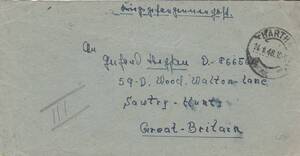 Kriegsgefangenenpost.
THARTH
14.1.48.
An
Gefand Steffan D. 866500
59-D. Wood. Walton-Lane
Sautry-Hunts
Great-Britain
III